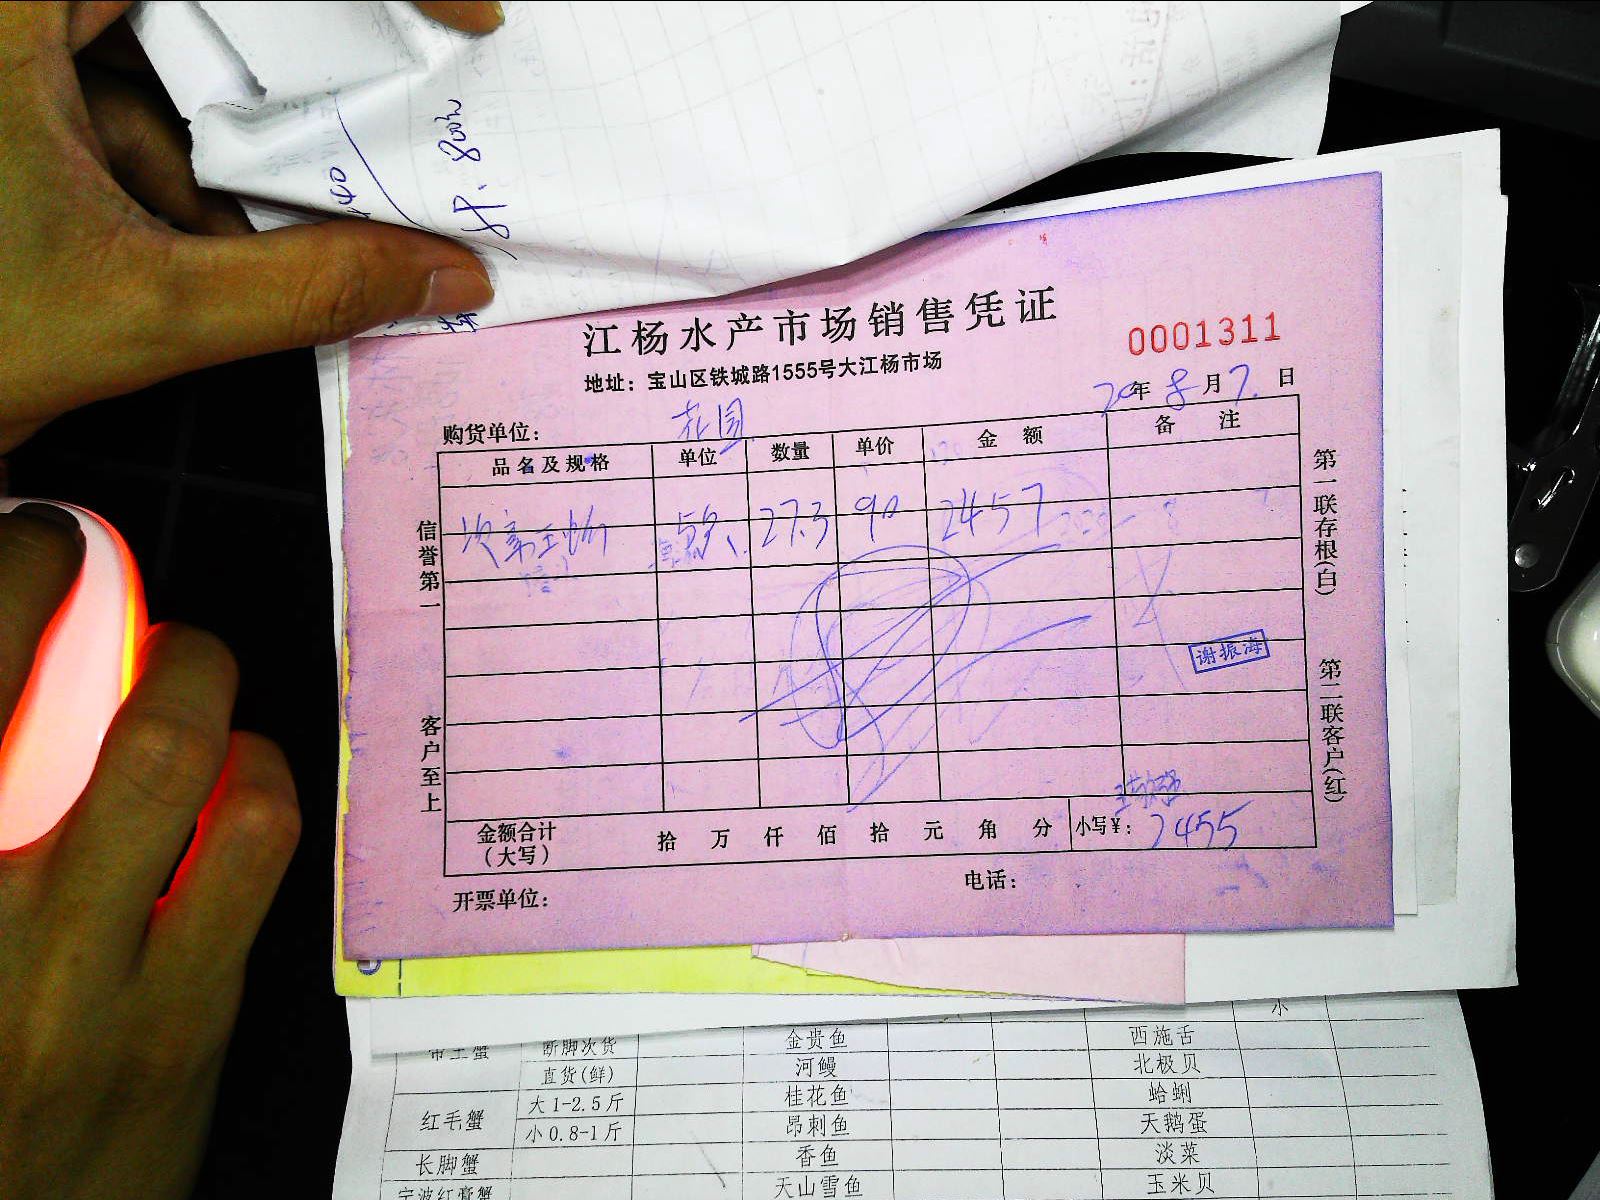 440
8P.800元
江杨水产市场销售凭证
0001311
地址：宝山区铁城路1555号大江杨市场
20年8月7.日
购货单位： 花园
品名及规格 单位 数量 单价 金额 备注
27.3 90 2457
信誉第一
客户至上
第一联存根(白)
第二联客户(红)
谢振海
金额合计（大写） 拾 万 仟 佰 拾 元 角 分 小写¥： 2455
开票单位： 电话：
小
帝王蟹 断脚次货 金贵鱼 西施舌
直货(鲜) 河鳗 北极贝
红毛蟹 大1-2.5斤 桂花鱼 蛤蜊
小0.8-1斤 昂刺鱼 天鹅蛋
长脚蟹 香鱼 淡菜
宁波红膏蟹 天山雪鱼 玉米贝